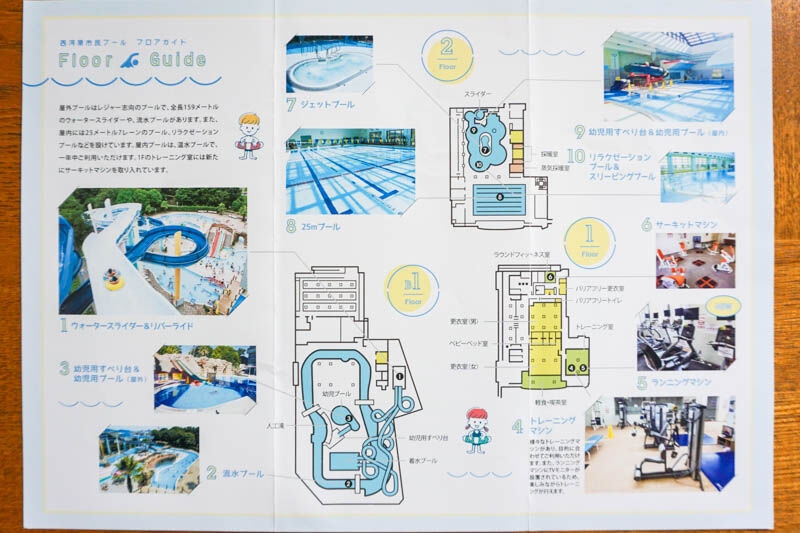 西河原市民プール フロアガイド
Floor Guide
屋外プールはレジャー志向のプールで、全長159メートル
のウォータースライダーや、流水プールがあります。また、
屋内には25メートル7レーンのプール、リラクゼーション
プールなどを設けています。屋内プールは、温水プールで、
一年中ご利用いただけます。1Fのトレーニング室には新た
にサーキットマシンを取り入れています。
1 ウォータースライダー&リバーライド
3 幼児用すべり台&
幼児用プール(屋外)
2 流水プール
7 ジェットプール
8 25mプール
2
Floor
スライダー
7
10
8
採暖室
蒸気採暖室
9 幼児用すべり台&幼児用プール(屋内)
10 リラクゼーション
プール&
スリーピングプール
B1
Floor
幼児プール
人工滝
幼児用すべり台
着水プール
1
3
2
1
Floor
ラウンドフィットネス室
バリアフリー更衣室
バリアフリートイレ
更衣室(男)
トレーニング室
ベビーベッド室
更衣室(女)
軽食・喫茶室
6
4
5
6 サーキットマシン
NEW
5 ランニングマシン
4 トレーニング
マシン
様々なトレーニングマ
シンがあり、目的に合
わせてご利用いただけ
ます。また、ランニング
マシンにTVモニターが
設置されているため、
楽しみながらトレーニ
ングが行えます。